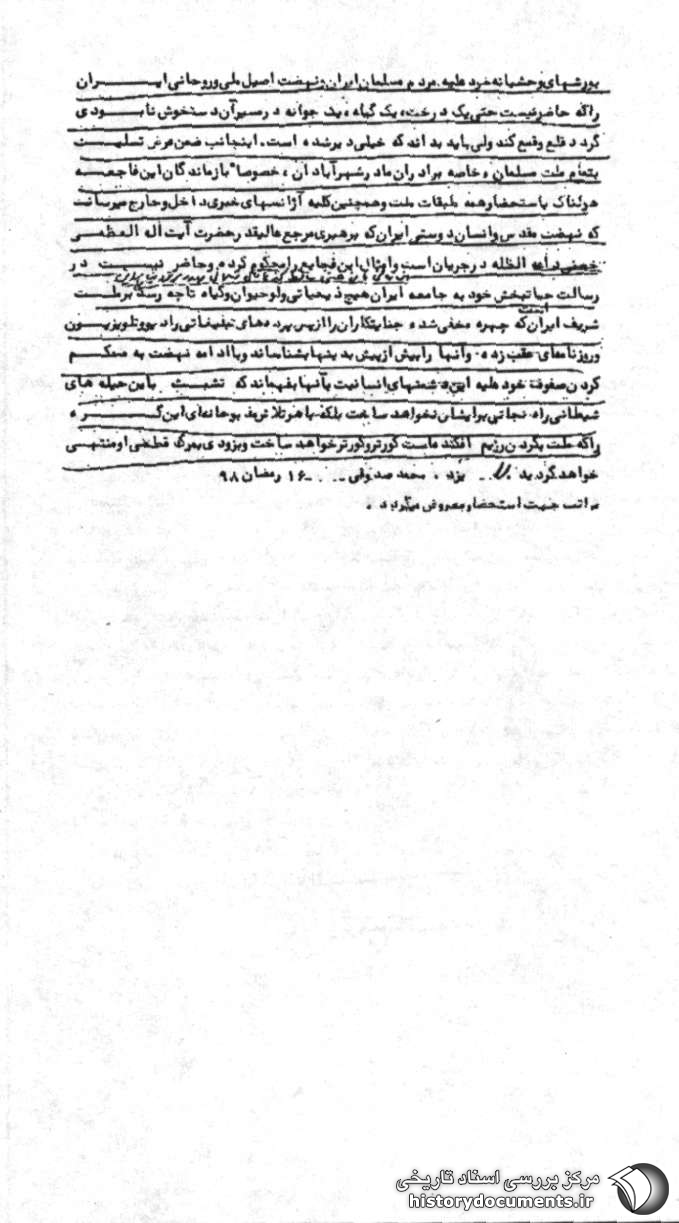 یورشهای وحشیانه خود علیه مردم مسلمان ایران و نهضت اصیل ملی و روحانی ایـــــران
راکه حاضر نیست حتی یک درخت، یک گیاه، یک جوانه در سیر آن دستخوش نابـــودی
گردد قلع و قمع کند ولی باید بداند که خیلی دیر شده است. اینجانب ضمن عرض تسلیــت
بتمام ملت مسلمان و خاصه برادران مادر شهر آبادان، خصوصا" بازماندگان این فاجعـــه
هولناک باستحضار همه طبقات ملت و همچنین کلیه آژانسهای خبری داخل و خارج میرسانـد
که نهضت مقدس و انسان دوستی ایران که برهبری مرجع عالیقدر حضرت آیت اله العظمــی
خمینی دامه الظله در جریان است و امثال این فجایع را محکوم کرده و حاضر نیســت در
رسالت حیاتبخش خود به جامعه ایران هیچ ذیحیاتی ولو حیوان و گیاه
شریف ایران که چهره مخفی شده جنایتکاران را از پس پرده های تبلیغاتی رادیو و تلویزیــون
و روزنامه‌های عقب زده و آنها را بیش از پیش بدینها بشناساند و با ادامه نهضت به محکــم
کردن صفوف خود علیه این دشمنهای انسانیت بآنها بفهماند که تشبث باین حیله های
شیطانی راه نجاتی برایشان نخواهد ساخت بلکه با هر تلاش مذبوحانه‌ای این گــــره
راکه ملت بگردن رژیم افکنده است کورتر و کورتر خواهد ساخت و بزودی بمرگ قطعی او منتهــی
خواهد گردید. یزد، محمد صدوقی - ۱۶ رمضان ۹۸
مراتب جهت استحضار معروض میگردد.
مرکز بررسی اسناد تاریخی
historydocuments.ir